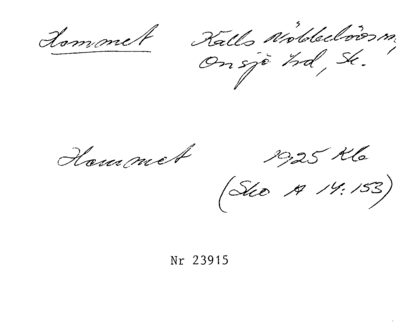 Hommet Kalls Nöbbelövs sn,
Onsjö hd, Sk.
Hommet 1925 Kb
(Sko A 14:153)
Nr 23915